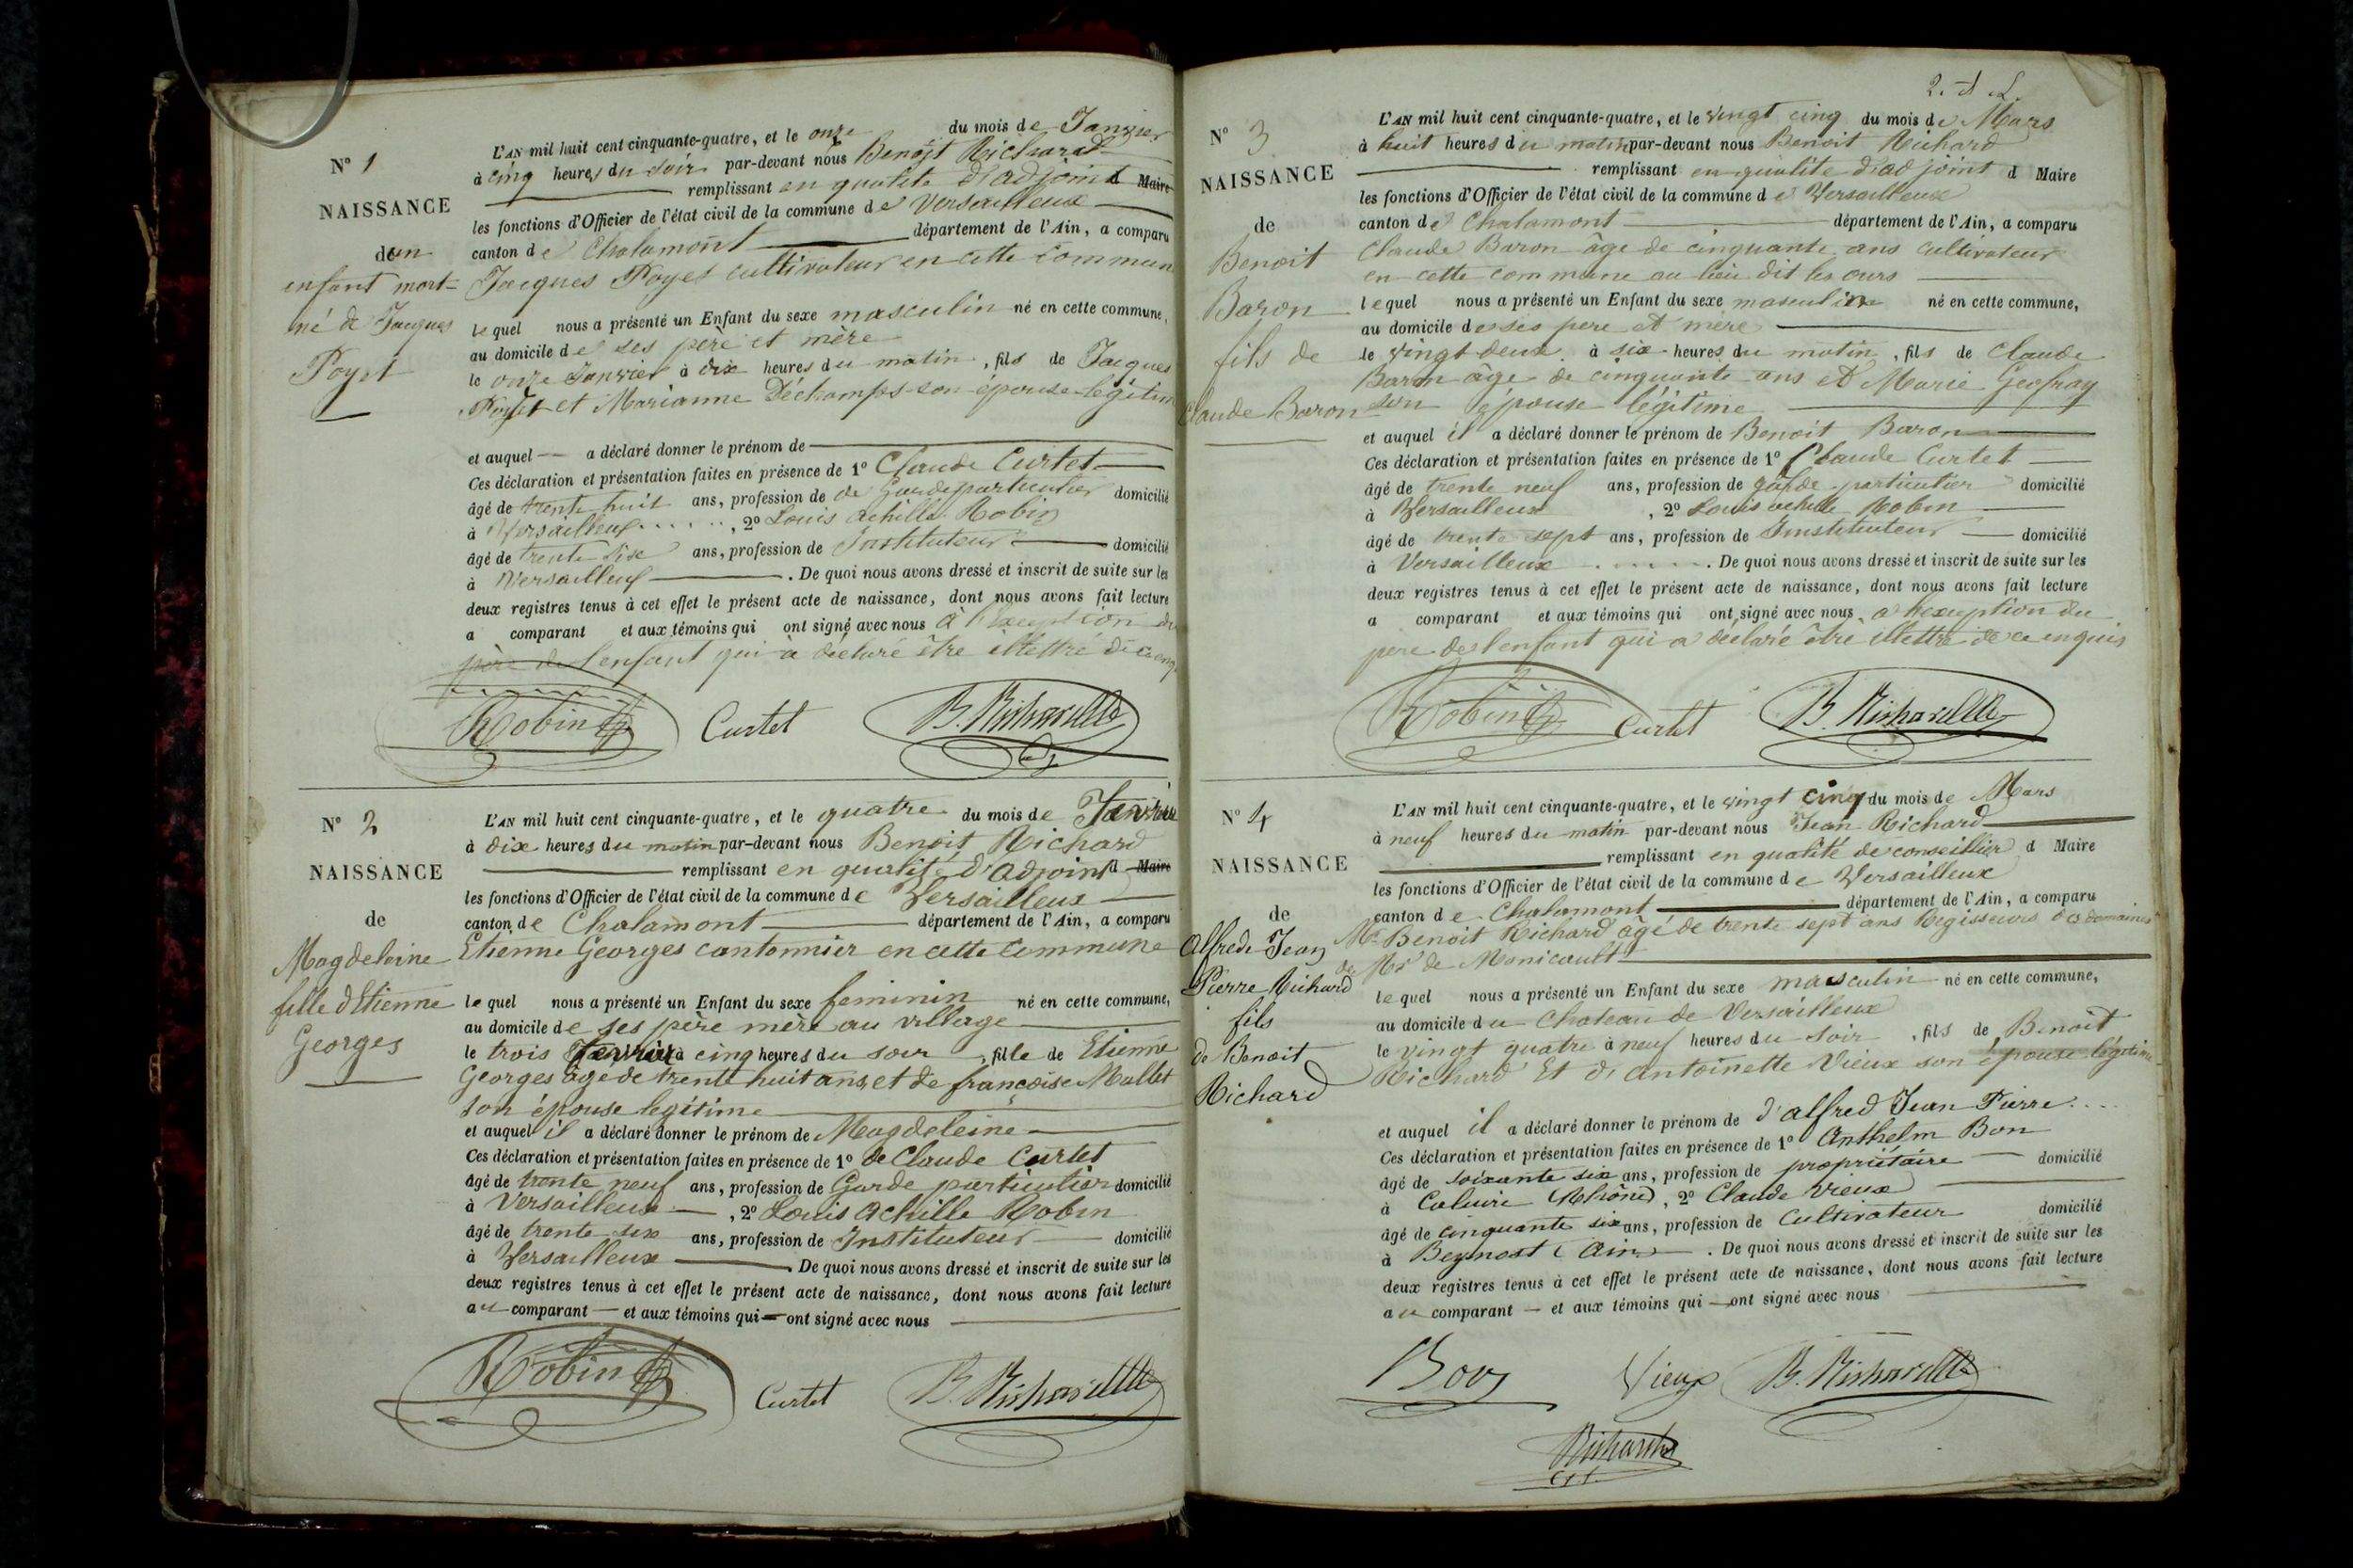 N° 1
NAISSANCE
d'un
enfant mort-
né de Jacques
Poyet
L'AN mil huit cent cinquante-quatre, et le onze du mois de Janvier
à cinq heures du soir par-devant nous Benoît Richard
remplissant en qualité d'adjoint d Maire
les fonctions d'Officier de l'état civil de la commune de Versailleux
canton de Chalamont département de l'Ain, a comparu
Jacques Poyet cultivateur en cette commune
lequel nous a présenté un Enfant du sexe masculin né en cette commune,
au domicile de ses père et mère
le onze Janvier à dix heures du matin, fils de Jacques
Poyet et Marianne Déchamps son épouse légitime
et auquel a déclaré donner le prénom de
Ces déclaration et présentation faites en présence de 1° Claude Curtet
âgé de trente huit ans, profession de de Garde particulier domicilié
à Versailleux, 2° Louis achille Robin
âgé de trente six ans, profession de Instituteur domicilié
à Versailleux. De quoi nous avons dressé et inscrit de suite sur les
deux registres tenus à cet effet le présent acte de naissance, dont nous avons fait lecture
a comparant et aux témoins qui ont signé avec nous à l'exception du
père de l'enfant qui a déclaré être illettré de ce enq
Robin Curtet B. Richard
N° 2
NAISSANCE
de
Magdeleine
fille d'Etienne
Georges
L'AN mil huit cent cinquante-quatre, et le quatre du mois de
à dix heures du matin par-devant nous Benoit Richard
remplissant en qualité d'adjoint d Maire
les fonctions d'Officier de l'état civil de la commune de Versailleux
canton de Chalamont département de l'Ain, a comparu
Etienne Georges cantonnier en cette commune
lequel nous a présenté un Enfant du sexe feminin né en cette commune,
au domicile de ses père mère au village
le trois à cinq heures du soir, fille de Etienne
Georges âgé de trente huit ans, et de françoise Mallet
son épouse legitime
et auquel il a déclaré donner le prénom de Magdeleine
Ces déclaration et présentation faites en présence de 1° de Claude Curtet
âgé de trente neuf ans, profession de Garde particulier domicilié
à Versailleux, 2° Louis achille Robin
âgé de trente six ans, profession de Instituteur domicilié
à Versailleux. De quoi nous avons dressé et inscrit de suite sur les
deux registres tenus à cet effet le présent acte de naissance, dont nous avons fait lecture
au comparant et aux témoins qui ont signé avec nous
Robin Curtet B. Richard
N° 3
NAISSANCE
de
Benoit
Baron
fils de
Claude Baron
L'AN mil huit cent cinquante-quatre, et le vingt cinq du mois de Mars
à huit heures du matin par-devant nous Benoit Richard
remplissant en qualité d'adjoint d Maire
les fonctions d'Officier de l'état civil de la commune de Versailleux
canton de Chalamont département de l'Ain, a comparu
Claude Baron âge de cinquante ans cultivateur
en cette commune au lieu dit les ours
lequel nous a présenté un Enfant du sexe masculin né en cette commune,
au domicile de ses pere et mère
le vingt deux à six heures du matin, fils de Claude
Baron âge de cinquante ans et Marie Geofray
son épouse légitime
et auquel il a déclaré donner le prénom de Benoit Baron
Ces déclaration et présentation faites en présence de 1° Claude Curtet
âgé de trente neuf ans, profession de garde particulier domicilié
à Versailleux, 2° Louis achille Robin
âgé de trente sept ans, profession de Instituteur domicilié
à Versailleux. De quoi nous avons dressé et inscrit de suite sur les
deux registres tenus à cet effet le présent acte de naissance, dont nous avons fait lecture
a comparant et aux témoins qui ont signé avec nous, a l'exception du
pere de l'enfant qui a déclaré être illettré de ce enquis
Robin Curtet B. Richard
N° 4
NAISSANCE
de
Alfrede Jean
Pierre Richard
fils
de Benoit
Richard
L'AN mil huit cent cinquante-quatre, et le vingt cinq du mois de Mars
à neuf heures du matin par-devant nous Jean Richard
remplissant en qualité de conseiller d Maire
les fonctions d'Officier de l'état civil de la commune de Versailleux
canton de Chalamont département de l'Ain, a comparu
Mr Benoit Richard âgé de trente sept ans Regisseurs des domaines
de Mr de Monicault
lequel nous a présenté un Enfant du sexe masculin né en cette commune,
au domicile du Chateau de Versailleux
le vingt quatre à neuf heures du soir, fils de Benoit
Richard Et d'antoinette Vieux son épouse légitime
et auquel il a déclaré donner le prénom de d'alfred Jean Pierre
Ces déclaration et présentation faites en présence de 1° Anthelm Bon
âgé de soixante six ans, profession de propriétaire domicilié
à Caluire (Rhône), 2° Claude Vieux
âgé de cinquante six ans, profession de Cultivateur domicilié
à Beynost (Ain). De quoi nous avons dressé et inscrit de suite sur les
deux registres tenus à cet effet le présent acte de naissance, dont nous avons fait lecture
au comparant et aux témoins qui ont signé avec nous
Vieux B. Richard
Richard